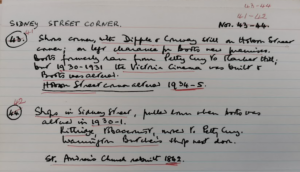 43-44
41-42
SIDNEY STREET CORNER. Nos. 43-44.
43. Shows corner, with Dipple & Conway still on Hobson Street
corner; on left clearance for Boots new premises.
Boots formerly ran from Petty Cury to
but 1930-1931 the Victoria Cinema was built &
Boots was altered.
Hobson Street corner altered 1934-5.
44. Shops in Sidney Street, pulled down when Boots was
altered in 1930-1.
Kittridge, Tobacconist, moved to Petty Cury.
Warrington Butchers shop next door.
St. Andrew's Church rebuilt 1842.